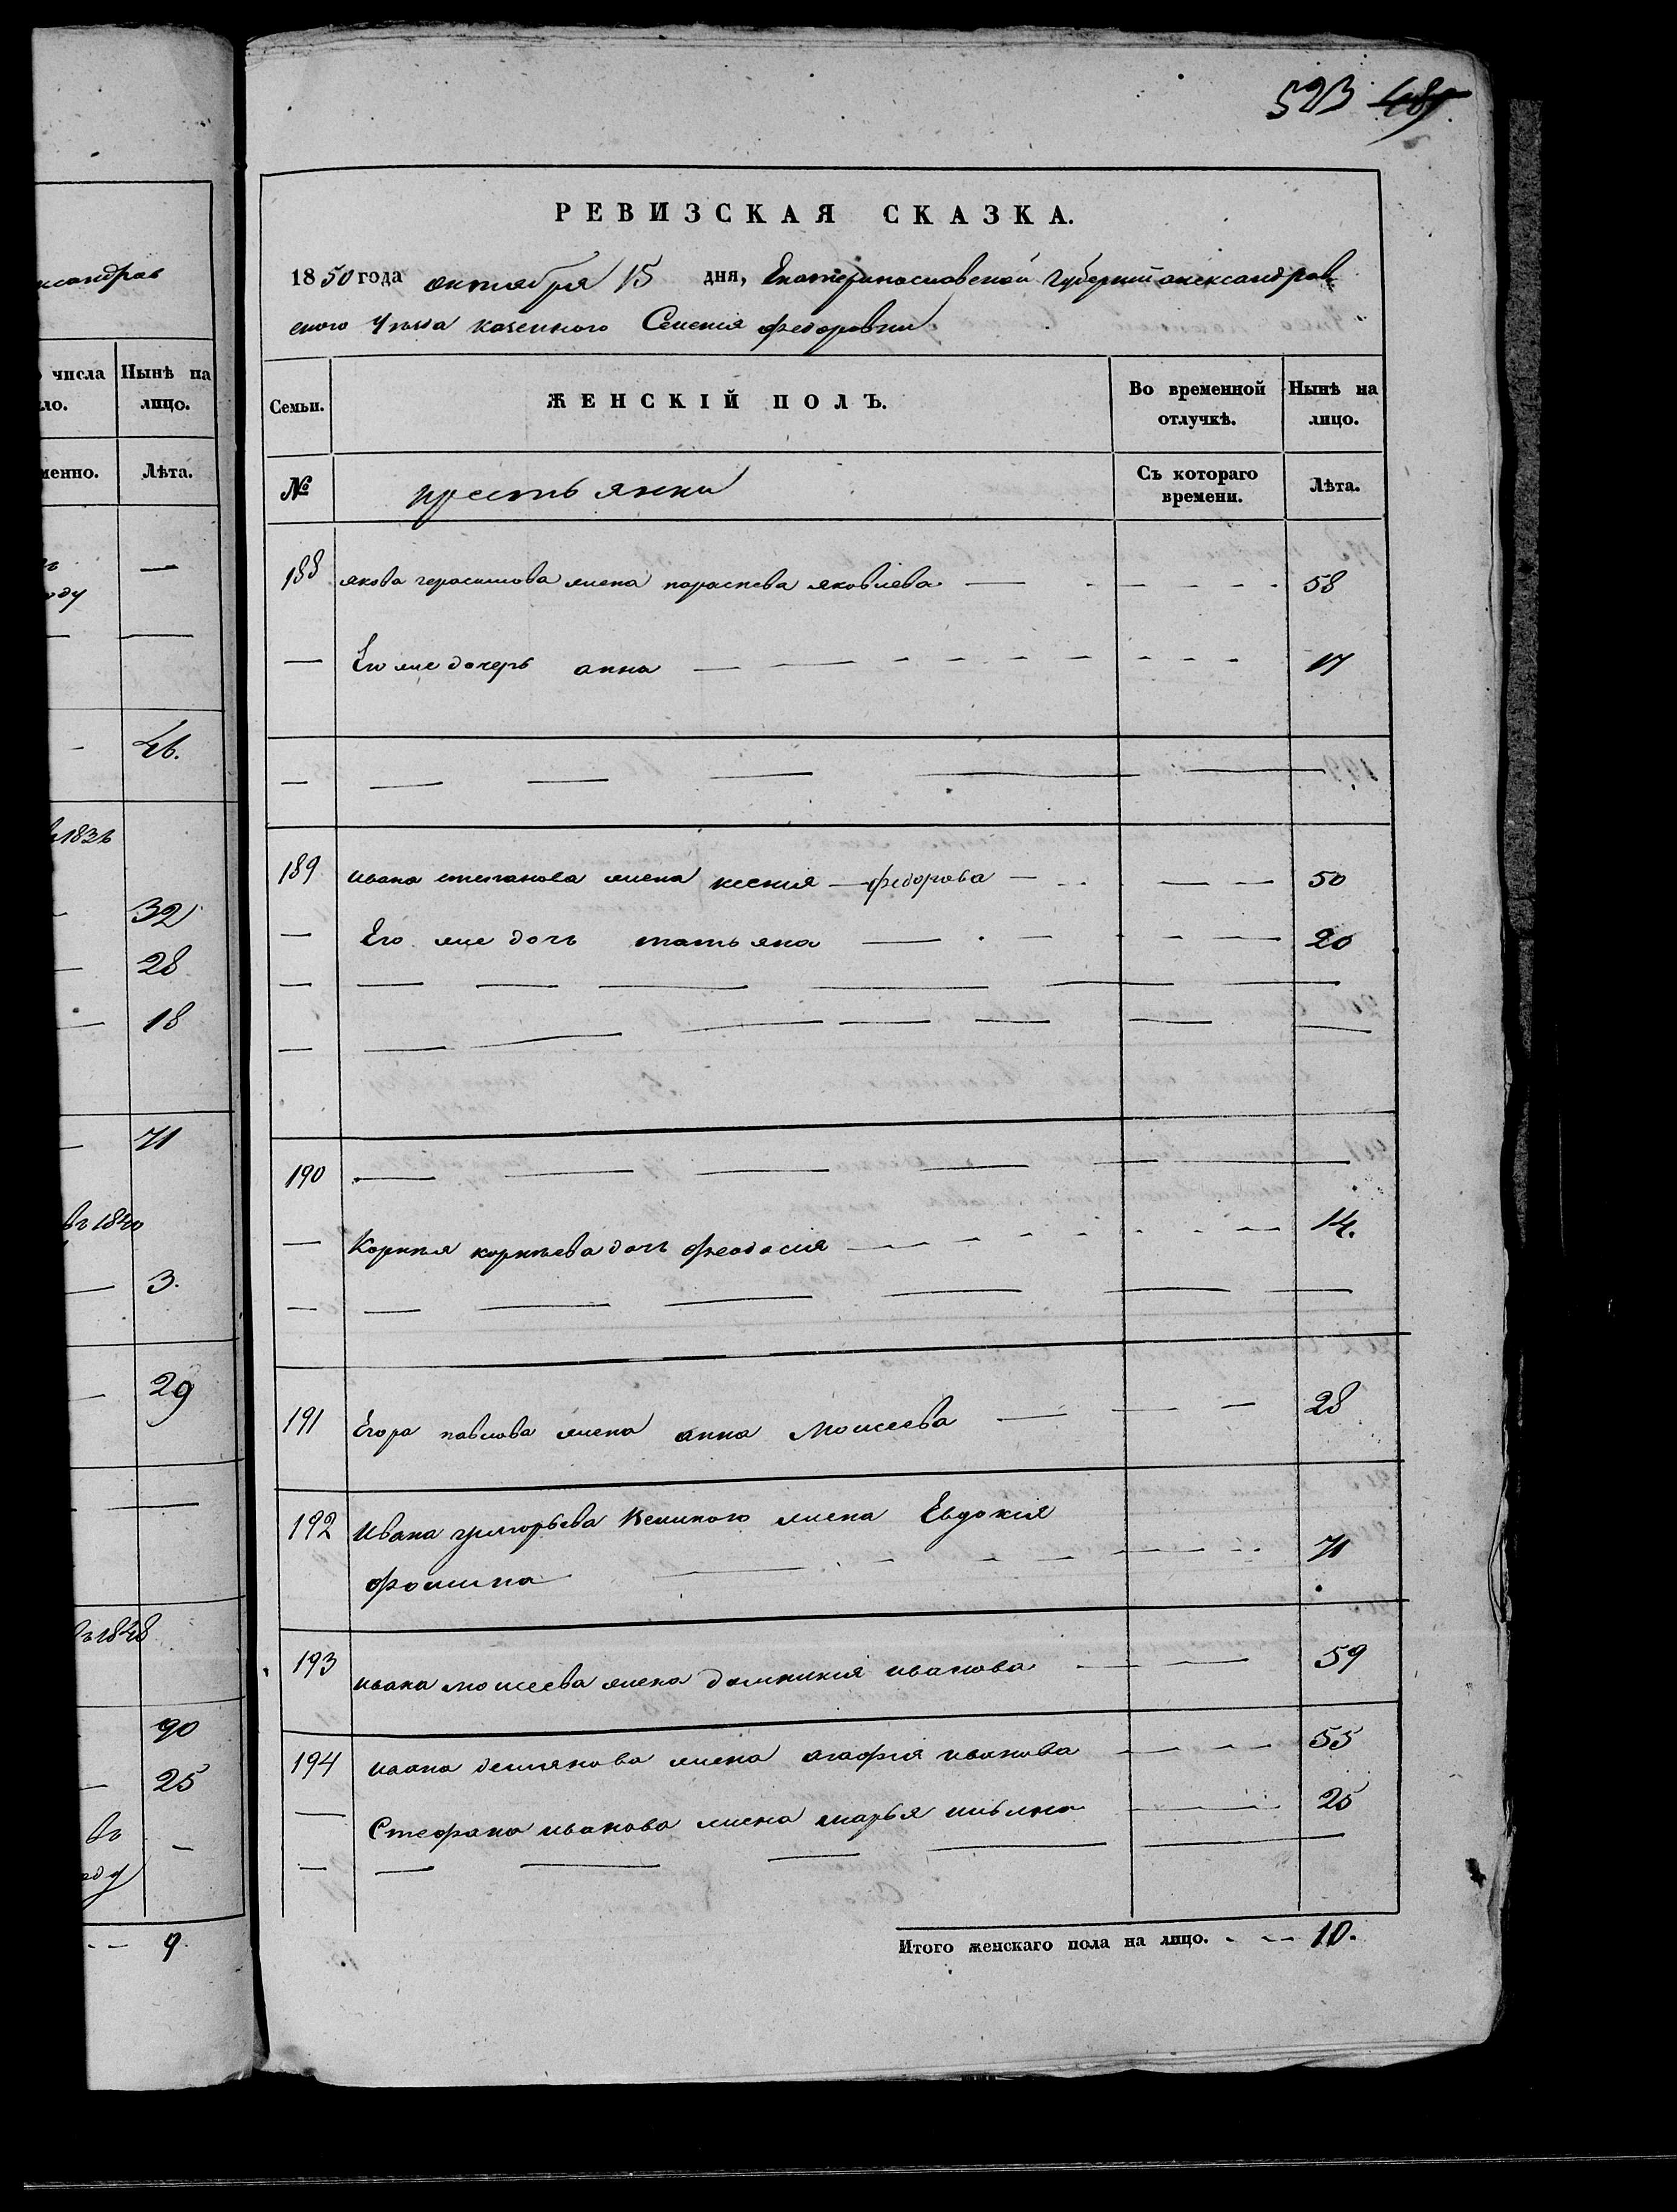 ксандров
523 485
РЕВИЗСКАЯ СКАЗКА.
1850 года октября 15 дня, Екатеринославской Губернии александров
ского Уезда казенного Селения федоровки
числа
Нынѣ на лицо.
Лѣта.
Семьи.
ЖЕНСКІЙ ПОЛЪ.
Во временной отлучкѣ.
Нынѣ на лицо.
№
крестьянки
Съ котораго времени.
Лѣта.
188 якова герасимова жена параскева яковлева 58
— Его же дочерь анна 17
189 ивана степанова жена ксения федорова 50
— Его же дочь татьяна 20
190
— Корнея корнеева дочь феодосия 14.
191 Егора павлова жена анна Моисеева 28
192 Ивана григорьева жена Евдокия
фомина 71
193 ивана моисеева жена домникия иванова 59
194 ивана демянова жена агафия иванова 55
— Стефана иванова жена марья 25
Итого женскаго пола на лицо. 10.
46.
32
28
18
71
въ 1840
3.
29
въ 1848
90
25
въ
9.